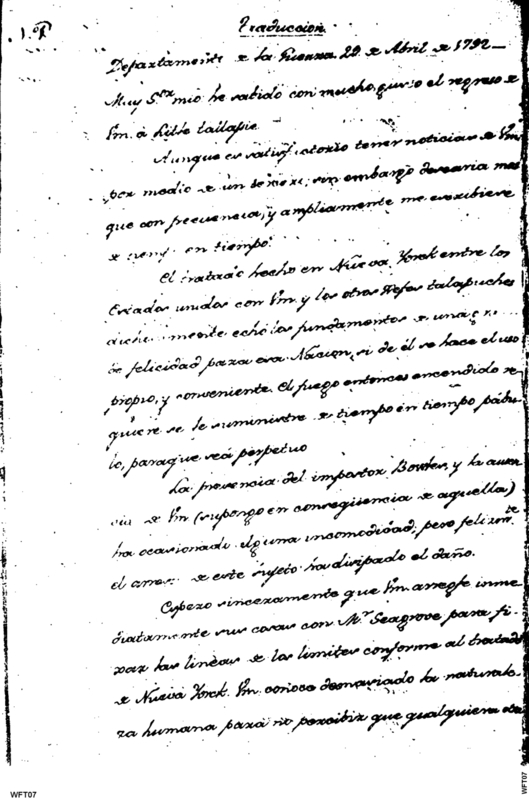 Traduccion
Departamento de la Guerra 29 de Abril de 1792
Muy Sor. mio he sabido con mucho gusto el regreso de
Vm. à Little tallapie
Aunque es satisfactorio tener noticias de Vm
por medio de un tercero, sin embargo desearia mas
que con frecuencia, y ampliamente me escribiese
de tiempo en tiempo.
El tratado hecho en Nueva Yorck entre los
Estados unidos con Vm. y los otros Gefes talapuches
mente echó los fundamentos de una
de felicidad para esa Nacion, si de él se hace el uso
propio, y conveniente. El fuego entonces encendido re
quiere se le suministre de tiempo en tiempo pábu
lo, paraque seá perpetuo
La presencia del impostor Bowles, y la ausen
cia de Vm (supongo en conseqüencia de aquella)
ha ocasionado alguna incomodidad, pero felizmte
el arresto de este sujeto ha disipado el daño.
Espero sinceramente que Vm. arregle inme
diatamente sus cosas con Mr. Seagrove para fi-
xar las lineas de los limites conforme al tratado
de Nueva Yorck. Vm. conoce demasiado la naturale-
za humana para no percibir que qualquiera otra
WFT07
WFT07